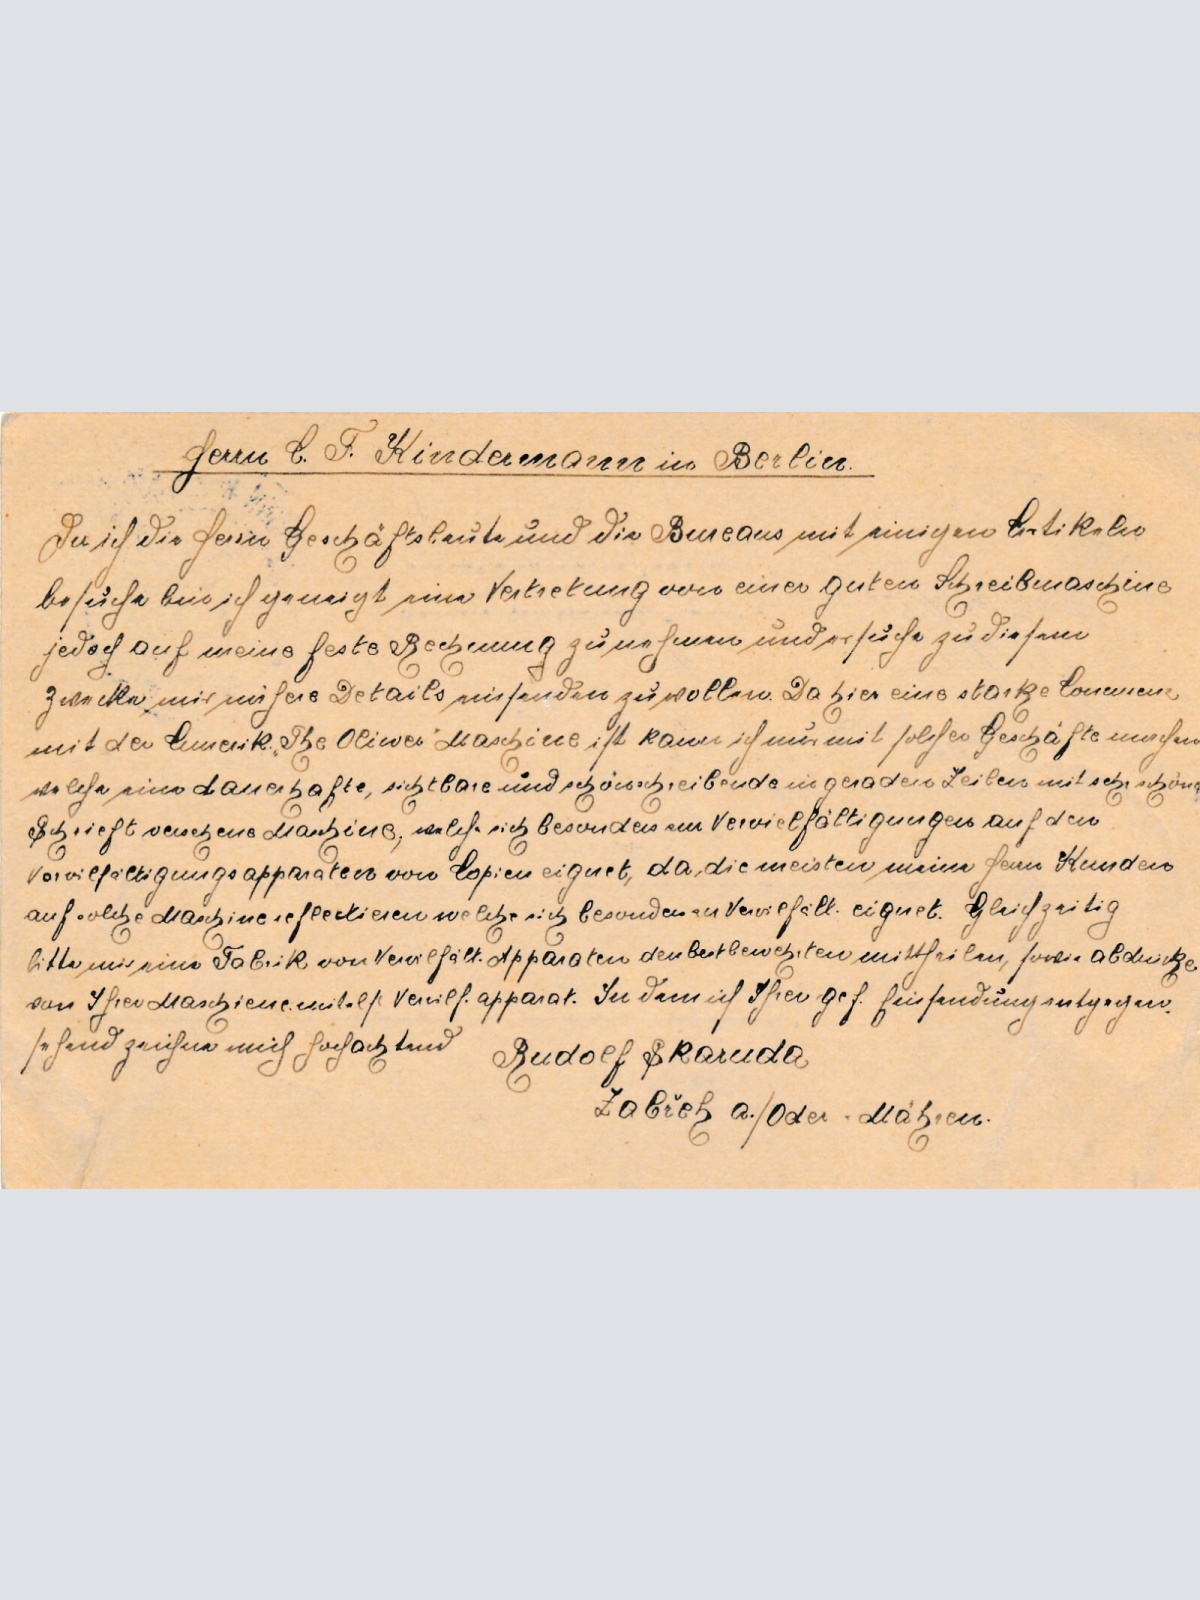 Herrn C. F. Kindermann in Berlin.
Da ich die Herrn Geschäftsleute und die Bureaus mit einigen Artikeln
besuche bin ich geneigt eine Vertretung von einer guten Schreibmaschine
jedoch auf meine feste Rechnung zu nehmen und ersuche zu diesem
Zwecke mir nähere Details einsenden zu wollen. Da hier eine starke Concurenz
mit der Amerik. „The Oliwer" Maschine ist kann ich nur mit solcher Geschäfte machen
welche eine dauerhafte, sichtbare und schönschreibende in geraden Zeilen mit sehr schöner
Schrieft versehene Maschine, welche sich besonders zur Vervielfältigungen auf den
Vervielfältigungsapparaten von Copien eignet, da die meisten meine Herrn Kunden
auf solche Maschine reflectieren welche sich besonders zur Vervielfält. eignet. Gleichzeitig
bitte mir eine Fabrik von Vervielfält. Apparaten den bestbewehrten mittheilen, sowie abdrücke
von Ihrer Maschiene mitelst Vervielf. apparat. In dem ich Ihrer gef. Einsendung entgegen
sehend zeichne mich hochachtend Rudolf Skaruda
Zabřeh a./Oder - Mähren.